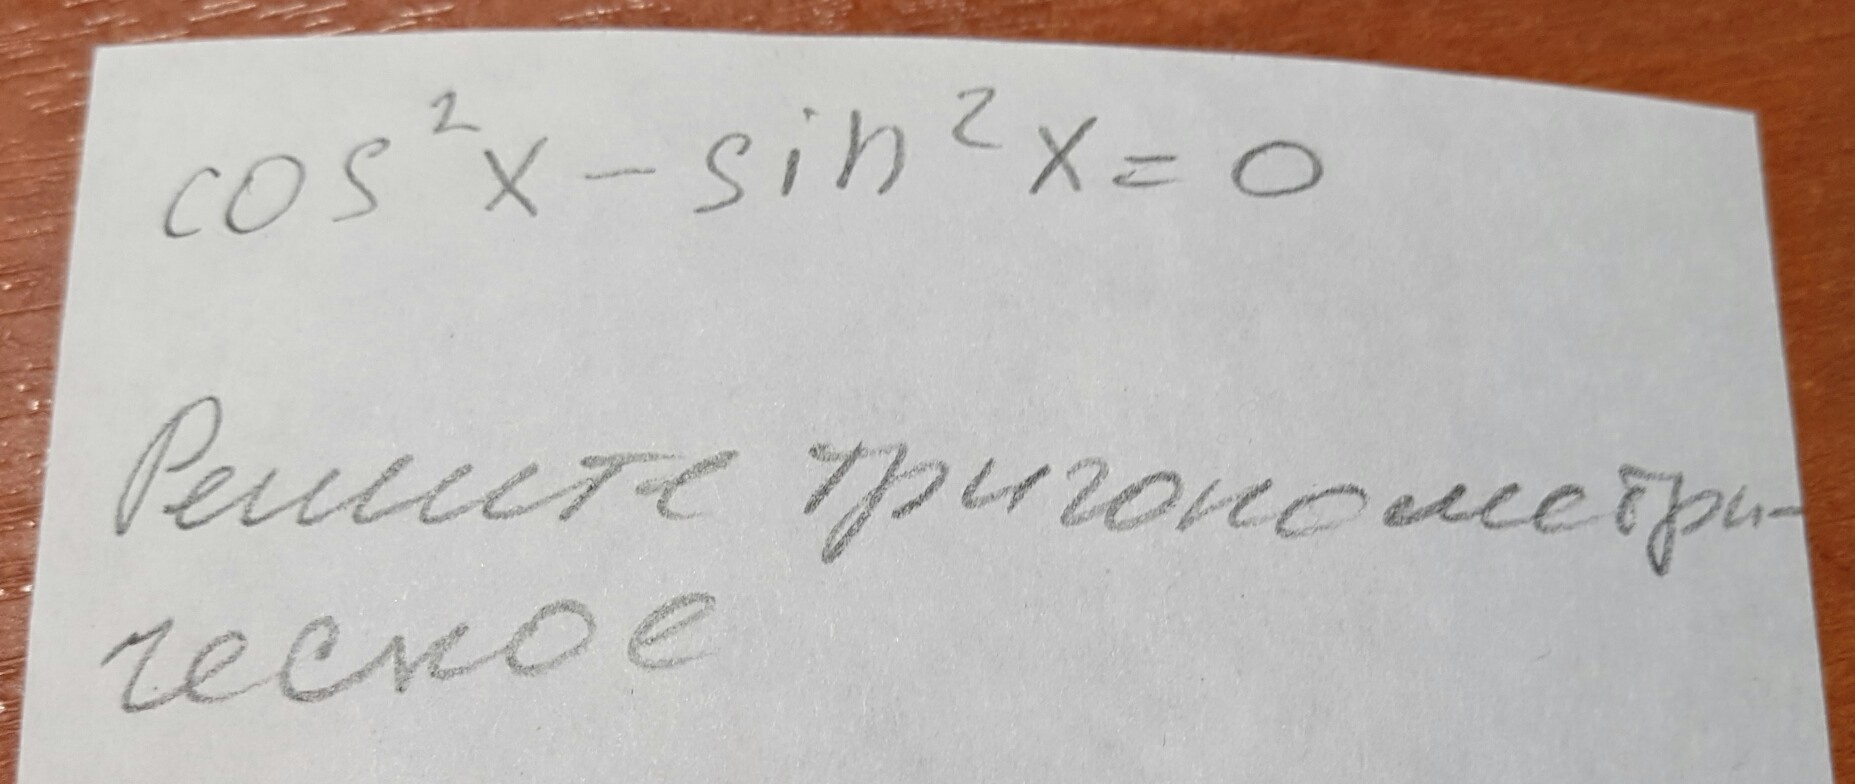 cos²x - sin²x = 0
Решите тригонометри-
ческое